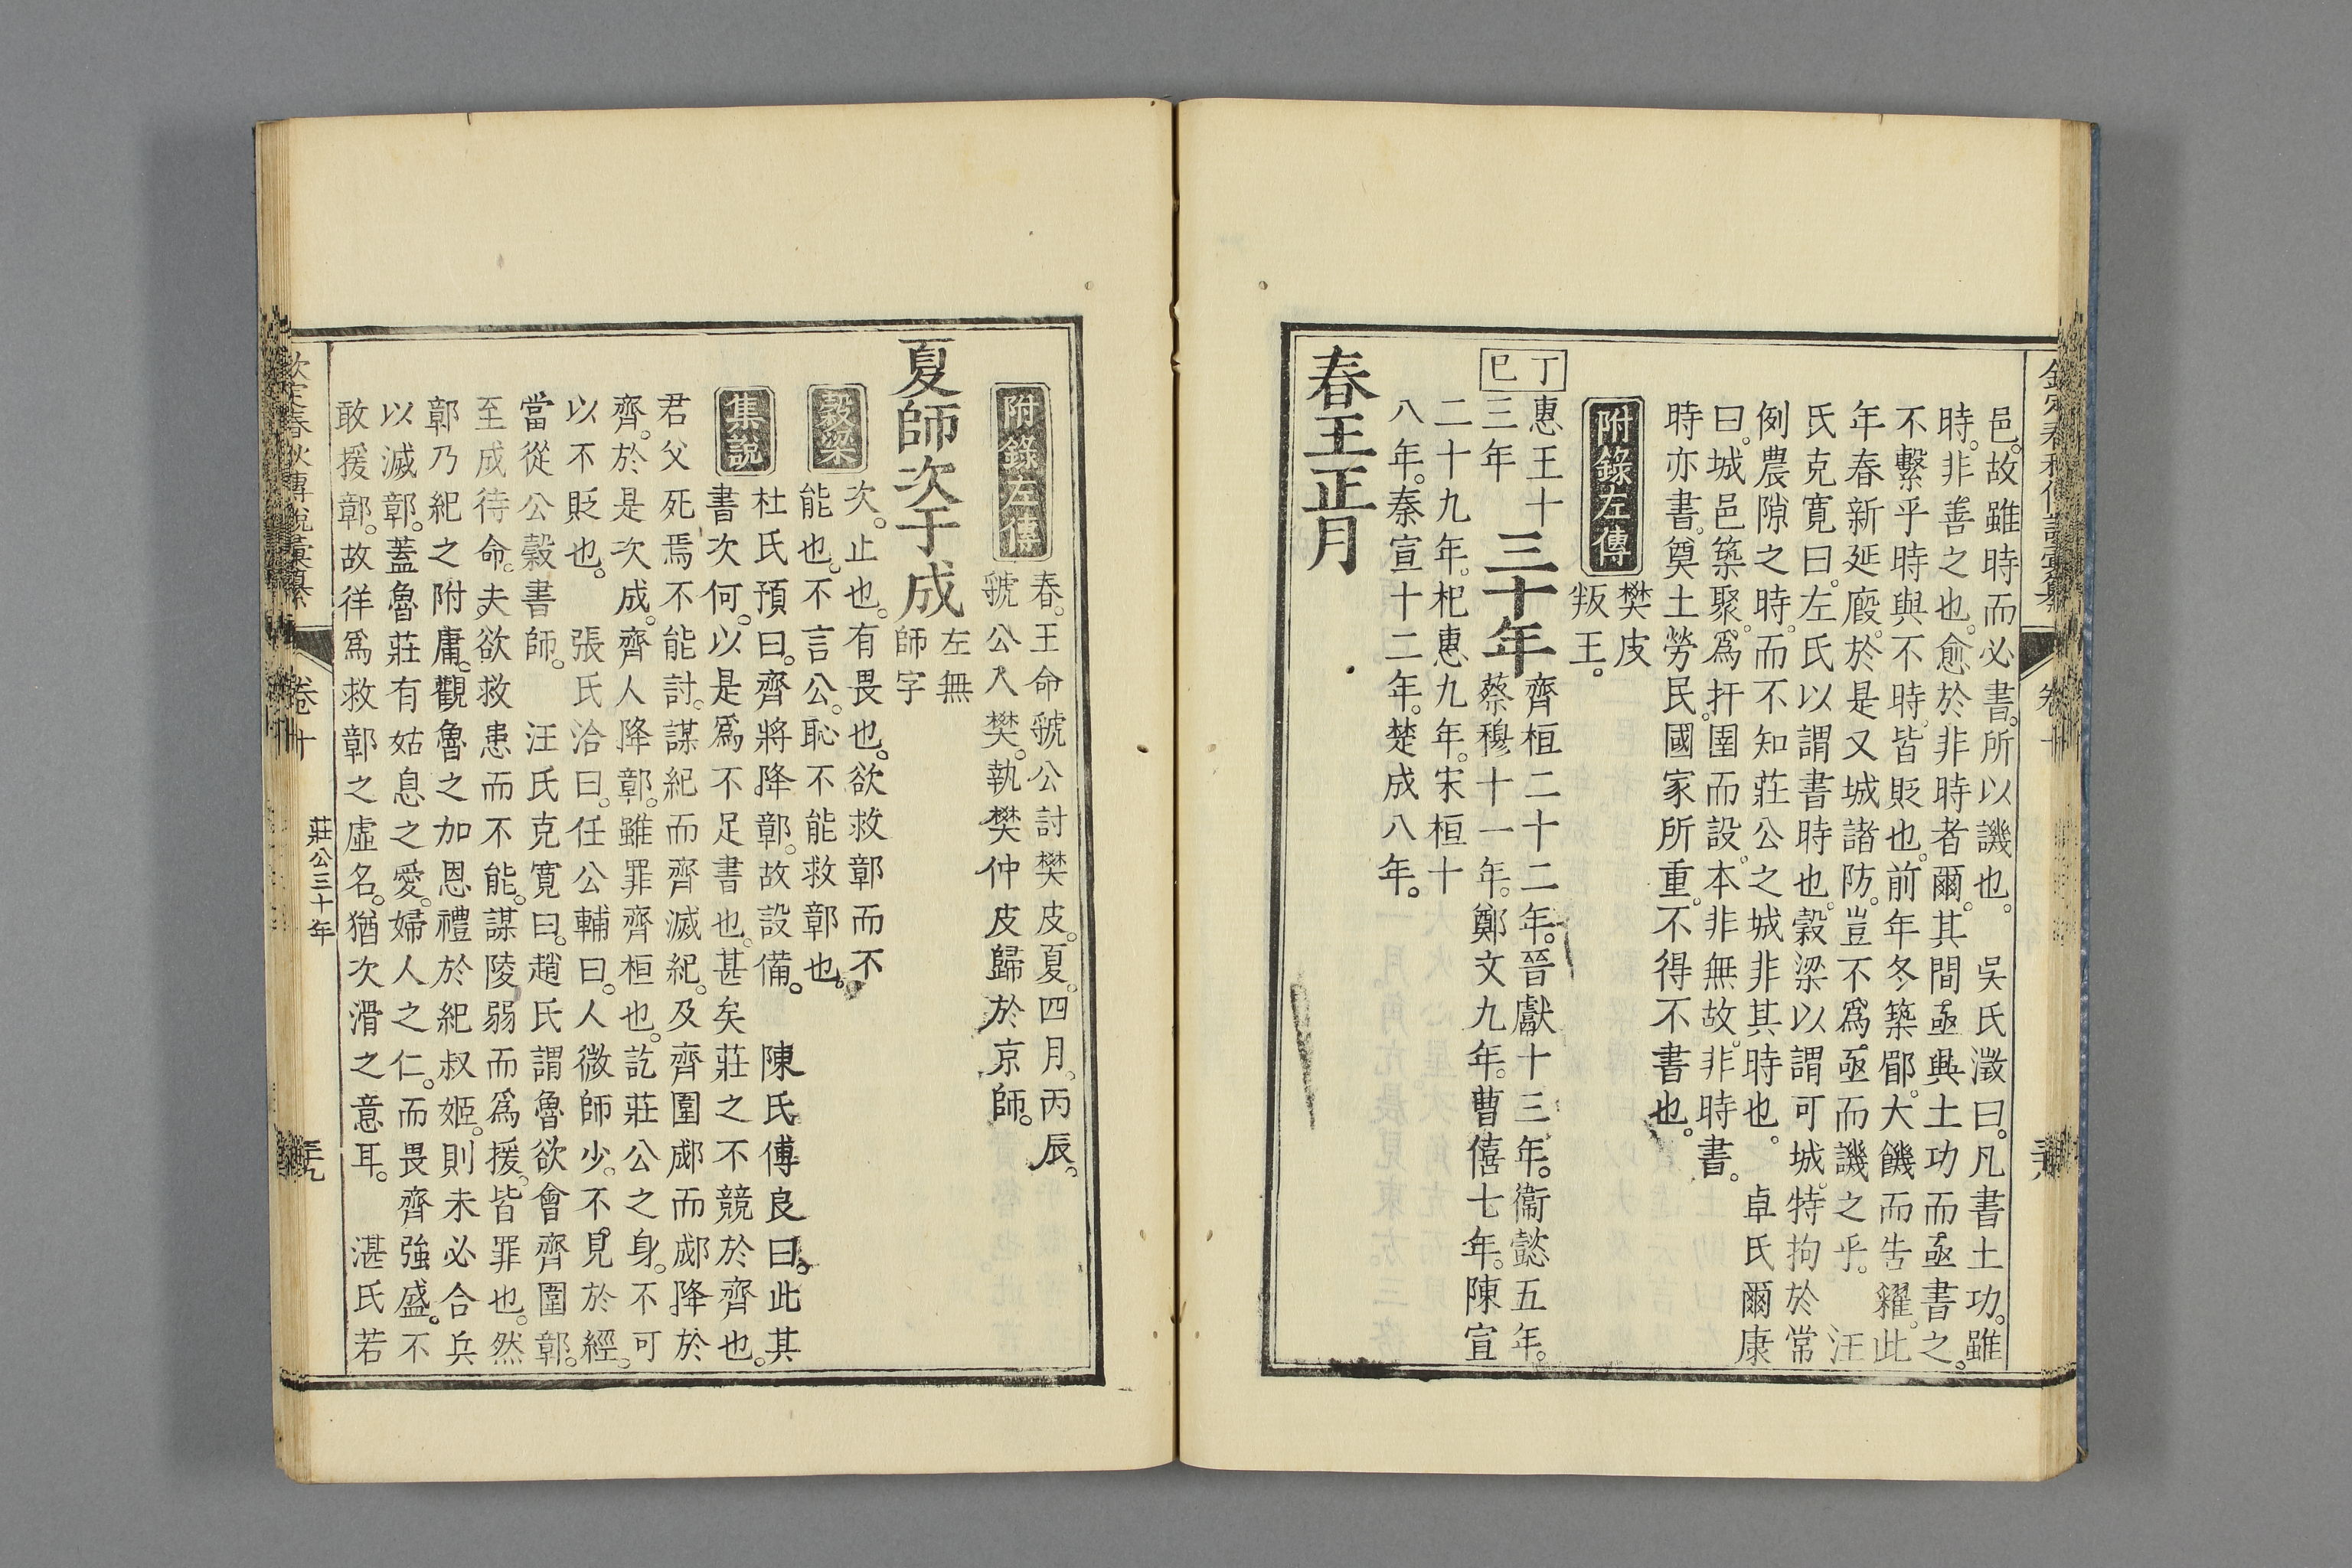 欽定春秋傳說彙纂 卷十
邑。故雖時而必書。所以譏也。 吳氏澂曰。凡書土功。雖
時。非善之也。愈於非時者爾。其間亟與土功而亟書之。
不繫乎時與不時。皆貶也。前年冬築郿。大饑而告糴。此
年春新延廄。於是又城諸防。豈不爲亟而譏之乎。 汪
氏克寬曰。左氏以謂書時也。穀梁以謂可城。特拘於常
例農隙之時。而不知莊公之城非其時也。 卓氏爾康
曰。城邑築聚。爲扞圉而設。本非無故。非時書。
時亦書。奠土勞民。國家所重。不得不書也。
附錄左傳 樊皮
叛王。
丁巳
惠王十
三年
三十年
齊桓二十二年。晉獻十三年。衞懿五年。
蔡穆十一年。鄭文九年。曹僖七年。陳宣
二十九年。杞惠九年。宋桓十
八年。秦宣十二年。楚成八年。
春王正月
附錄左傳 春。王命虢公討樊皮。夏。四月。丙辰。
虢公入樊。執樊仲皮歸於京師。
夏師次于成
左無
師字
穀梁 次。止也。有畏也。欲救鄣而不
能也。不言公。恥不能救鄣也。
集說 杜氏預曰。齊將降鄣。故設備。 陳氏傅良曰。此其
書次何。以是爲不足書也。甚矣莊之不競於齊也。
君父死焉不能討。謀紀而齊滅紀。及齊圍郕而郕降於
齊。於是次成。齊人降鄣。雖罪齊桓也。訖莊公之身。不可
以不貶也。 張氏洽曰。任公輔曰。人微師少。不見於經。
當從公穀書師。 汪氏克寬曰。趙氏謂魯欲會齊圍鄣。
至成待命。夫欲救患而不能。謀陵弱而爲援。皆罪也。然
鄣乃紀之附庸。觀魯之加恩禮於紀叔姬。則未必合兵
以滅鄣。蓋魯莊有姑息之愛。婦人之仁。而畏齊強盛。不
敢援鄣。故徉爲救鄣之虛名。猶次滑之意耳。 湛氏若
欽定春秋傳說彙纂 卷十 莊公三十年